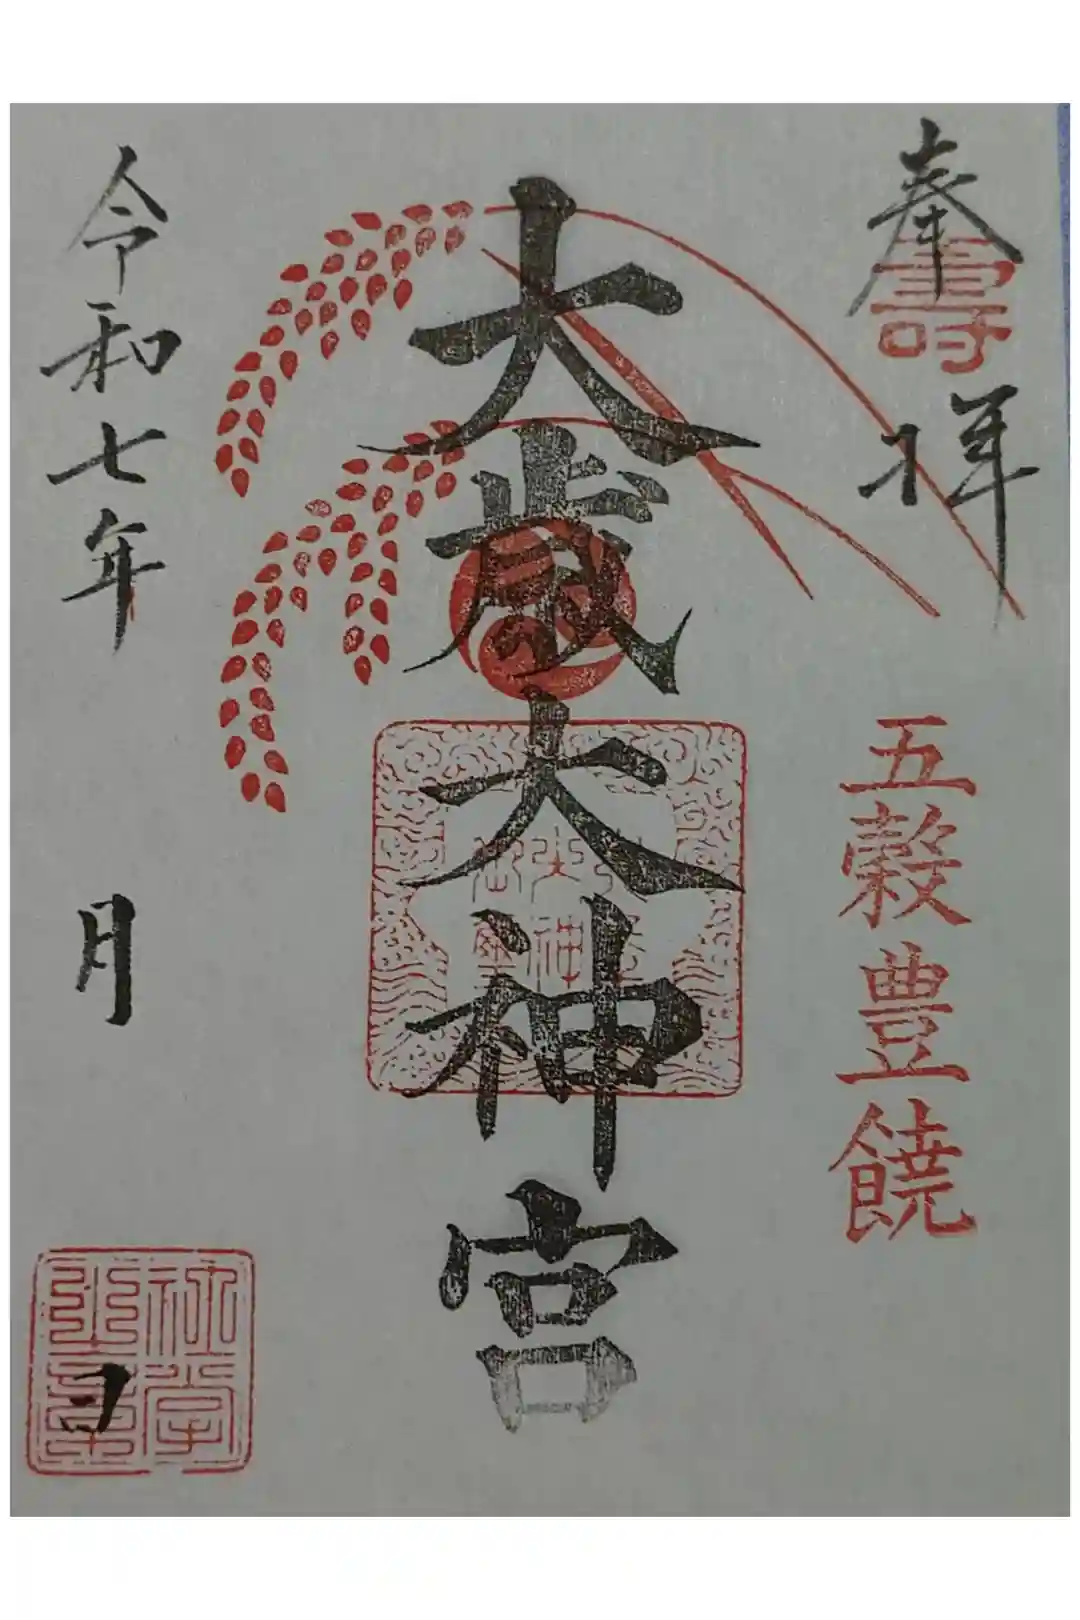 奉拝
壽
五穀豊饒
大歳大神宮
令和七年 月 日